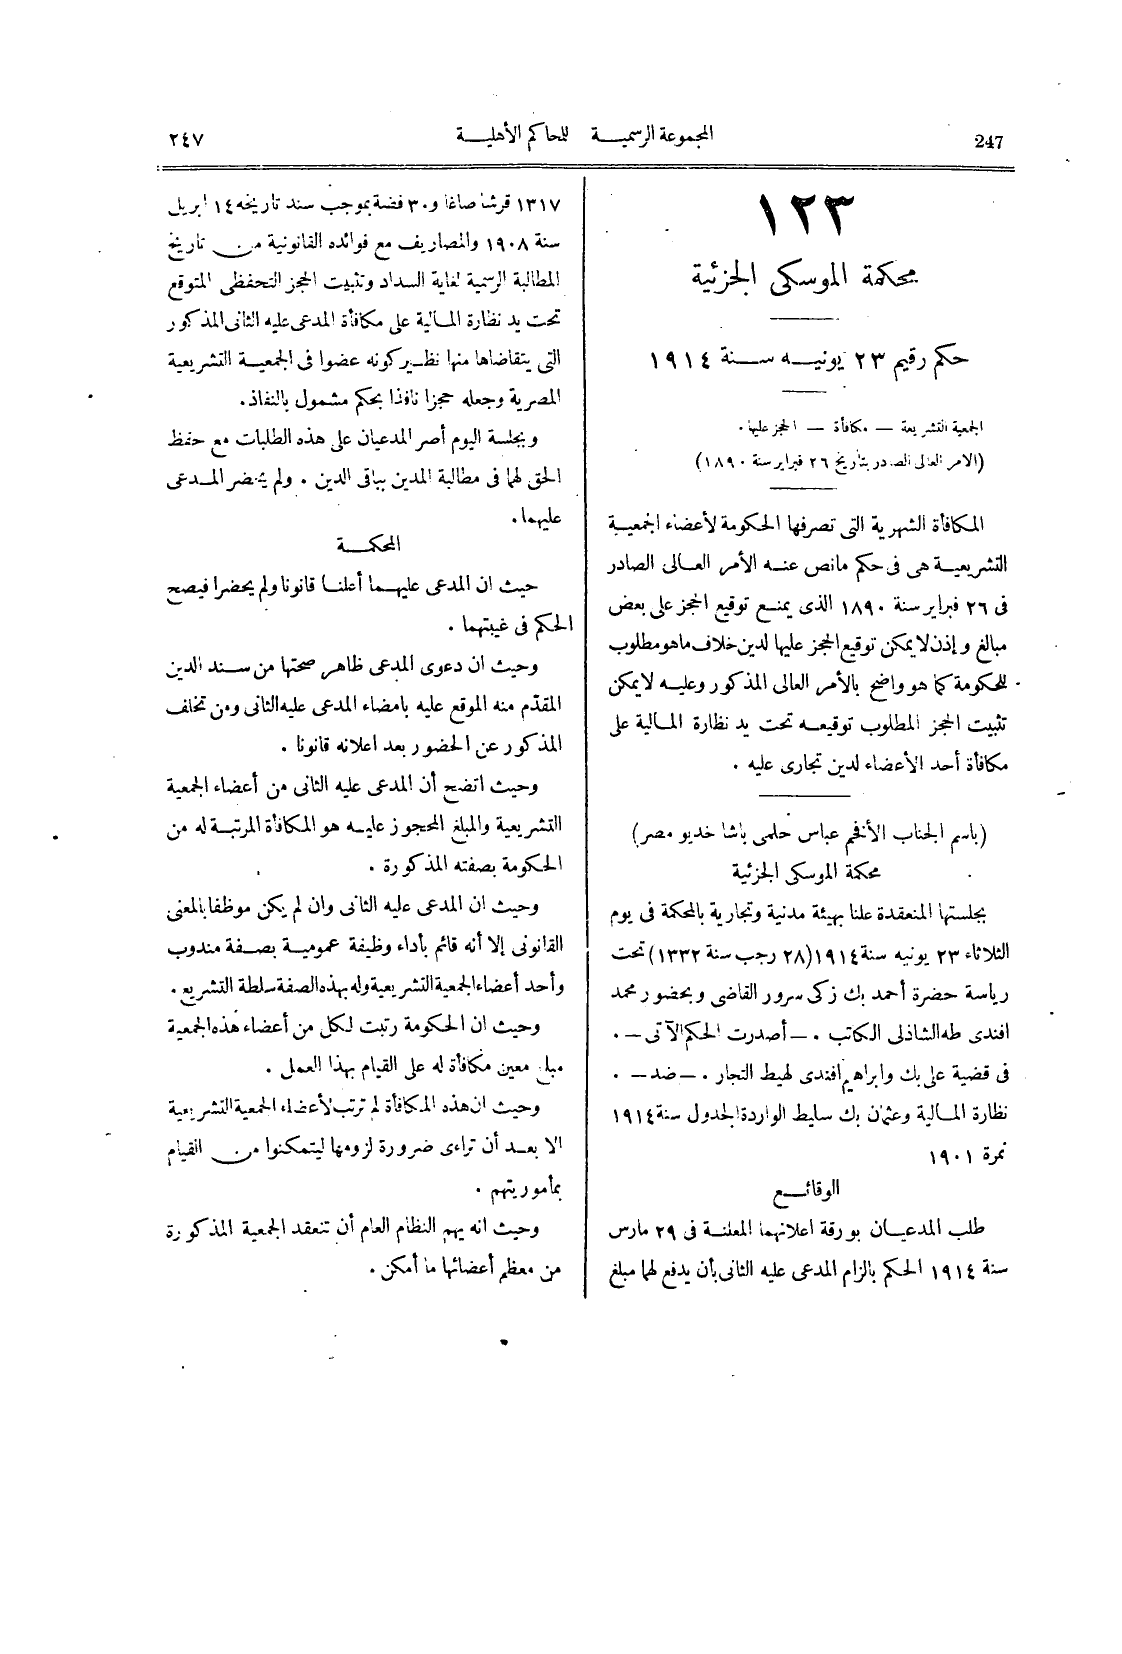 247
المجموعة الرسمية للمحاكم الأهلية
٢٤٧
١٢٣
محكمة الموسكى الجزئية
حكم رقيم ٢٣ يونيه سنة ١٩١٤
الجمعية التشريعة — مكافأة — الحجز عليها.
(الامر العالى الصادر بتأريخ ٢٦ فبراير سنة ١٨٩٠)
المكافأة الشهرية التى تصرفها الحكومة لأعضاء الجمعية
التشريعية هى فى حكم مانص عنه الأمر العالى الصادر
فى ٢٦ فبراير سنة ١٨٩٠ الذى يمنع توقيع الحجز على بعض
مبالغ وإذن لا يمكن توقيع الحجز عليها لدين خلاف ماهو مطلوب
للحكومة كما هو واضح بالأمر العالى المذكور وعليه لا يمكن
تثبيت الحجز المطلوب توقيعه تحت يد نظارة المالية على
مكافأة أحد الأعضاء لدين تجارى عليه .
(باسم الجناب الأفخم عباس حلمى باشا خديو مصر)
محكمة الموسكى الجزئية
بجلستها المنعقدة علنا بهيئة مدنية وتجارية بالمحكمة فى يوم
الثلاثاء ٢٣ يونيه سنة ١٩١٤ (٢٨ رجب سنة ١٣٣٢) تحت
رياسة حضرة أحمد بك زكى سرور القاضى وبحضور محمد
افندى طه الشاذلى الكاتب . — أصدرت الحكم الآتى — .
فى قضية على بك وابراهيم افندى لهيط التجار . — ضد — .
نظارة المالية وعثمان بك سليط الواردة الجدول سنة ١٩١٤
نمرة ١٩٠١
الوقائع
طلب المدعيان بورقة اعلانهما المعلنة فى ٢٩ مارس
سنة ١٩١٤ الحكم بالزام المدعى عليه الثانى بأن يدفع لهما مبلغ
١٣١٧ قرشا صاغا و٣٠ فضة بموجب سند تاريخه ١٤ ابريل
سنة ١٩٠٨ والمصاريف مع فوائده القانونية من تاريخ
المطالبة الرسمية لغاية السداد وتثبيت الحجز التحفظى المتوقع
تحت يد نظارة المالية على مكافأة المدعى عليه الثانى المذكور
التى يتقاضاها منها نظير كونه عضوا فى الجمعية التشريعية
المصرية وجعله حجزا نافذا بحكم مشمول بالنفاذ.
وبجلسة اليوم أصر المدعيان على هذه الطلبات مع حفظ
الحق لهما فى مطالبة المدين بباقى الدين . ولم يحضر المدعى
عليهما.
المحكمة
حيث ان المدعى عليهما أعلنا قانونا ولم يحضرا فيصح
الحكم فى غيبتهما .
وحيث ان دعوى المدعى ظاهر صحتها من سند الدين
المقدّم منه الموقع عليه بامضاء المدعى عليه الثانى ومن تخلف
المذكور عن الحضور بعد اعلانه قانونا .
وحيث اتضح أن المدعى عليه الثانى من أعضاء الجمعية
التشريعية والمبلغ المحجوز عليه هو المكافأة المرتبة له من
الحكومة بصفته المذكورة .
وحيث ان المدعى عليه الثانى وان لم يكن موظفا بالمعنى
القانونى إلا أنه قائم بأداء وظيفة عمومية بصفة مندوب
وأحد أعضاء الجمعية التشريعية وله بهذه الصفة سلطة التشريع .
وحيث ان الحكومة رتبت لكل من أعضاء هذه الجمعية
مبلغ معين مكافأة له على القيام بهذا العمل .
وحيث ان هذه المكافأة لم ترتب لأعضاء الجمعية التشريعية
الا بعد أن تراءى ضرورة لزومها ليتمكنوا من القيام
بمأموريتهم .
وحيث انه يهم النظام العام أن تنعقد الجمعية المذكورة
من معظم أعضائها ما أمكن .